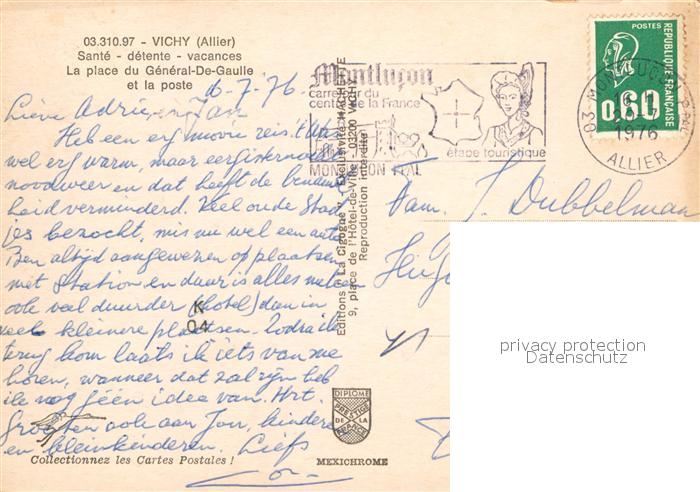 03.310.97 - VICHY (Allier)
Santé - détente - vacances
La place du Général-De-Gaulle
et la poste
16-7-76.
Lieve Adrie en Jan
Heb een erg mooie reis. 't Was
wel erg warm, maar eergisteren
noodweer en dat heeft de benauwd
heid verminderd. Veel oude Stad
jes bezocht, mis nu wel een auto
Ben altijd aangewezen op plaatsen
met Station en daar is alles meteen
ook veel duurder (hotel) dan in
veel kleinere plaatsen. Zodra ik
terug kom laats ik iets van me
horen, wanneer dat zal zijn heb
ik nog géén idee van. Hrt.
Groeten ook aan Jou, kinderen
en kleinkinderen. Liefs
Cor -
Collectionnez les Cartes Postales !
K
04
Editions "La Cigogne" - Exclusivité HACHETTE
9, place de l'Hôtel-de-Ville - 03200 VICHY
Reproduction interdite
DIPLOME
PRESTIGE
DE LA
FRANCE
MEXICHROME
Montluçon
carrefour du
centre de la France
étape touristique
MONTLUCON PPAL
POSTES
REPUBLIQUE FRANÇAISE
0,60
03 MONTLUCON PPAL
1976
ALLIER
Fam. J. Dubbelman
privacy protection
Datenschutz